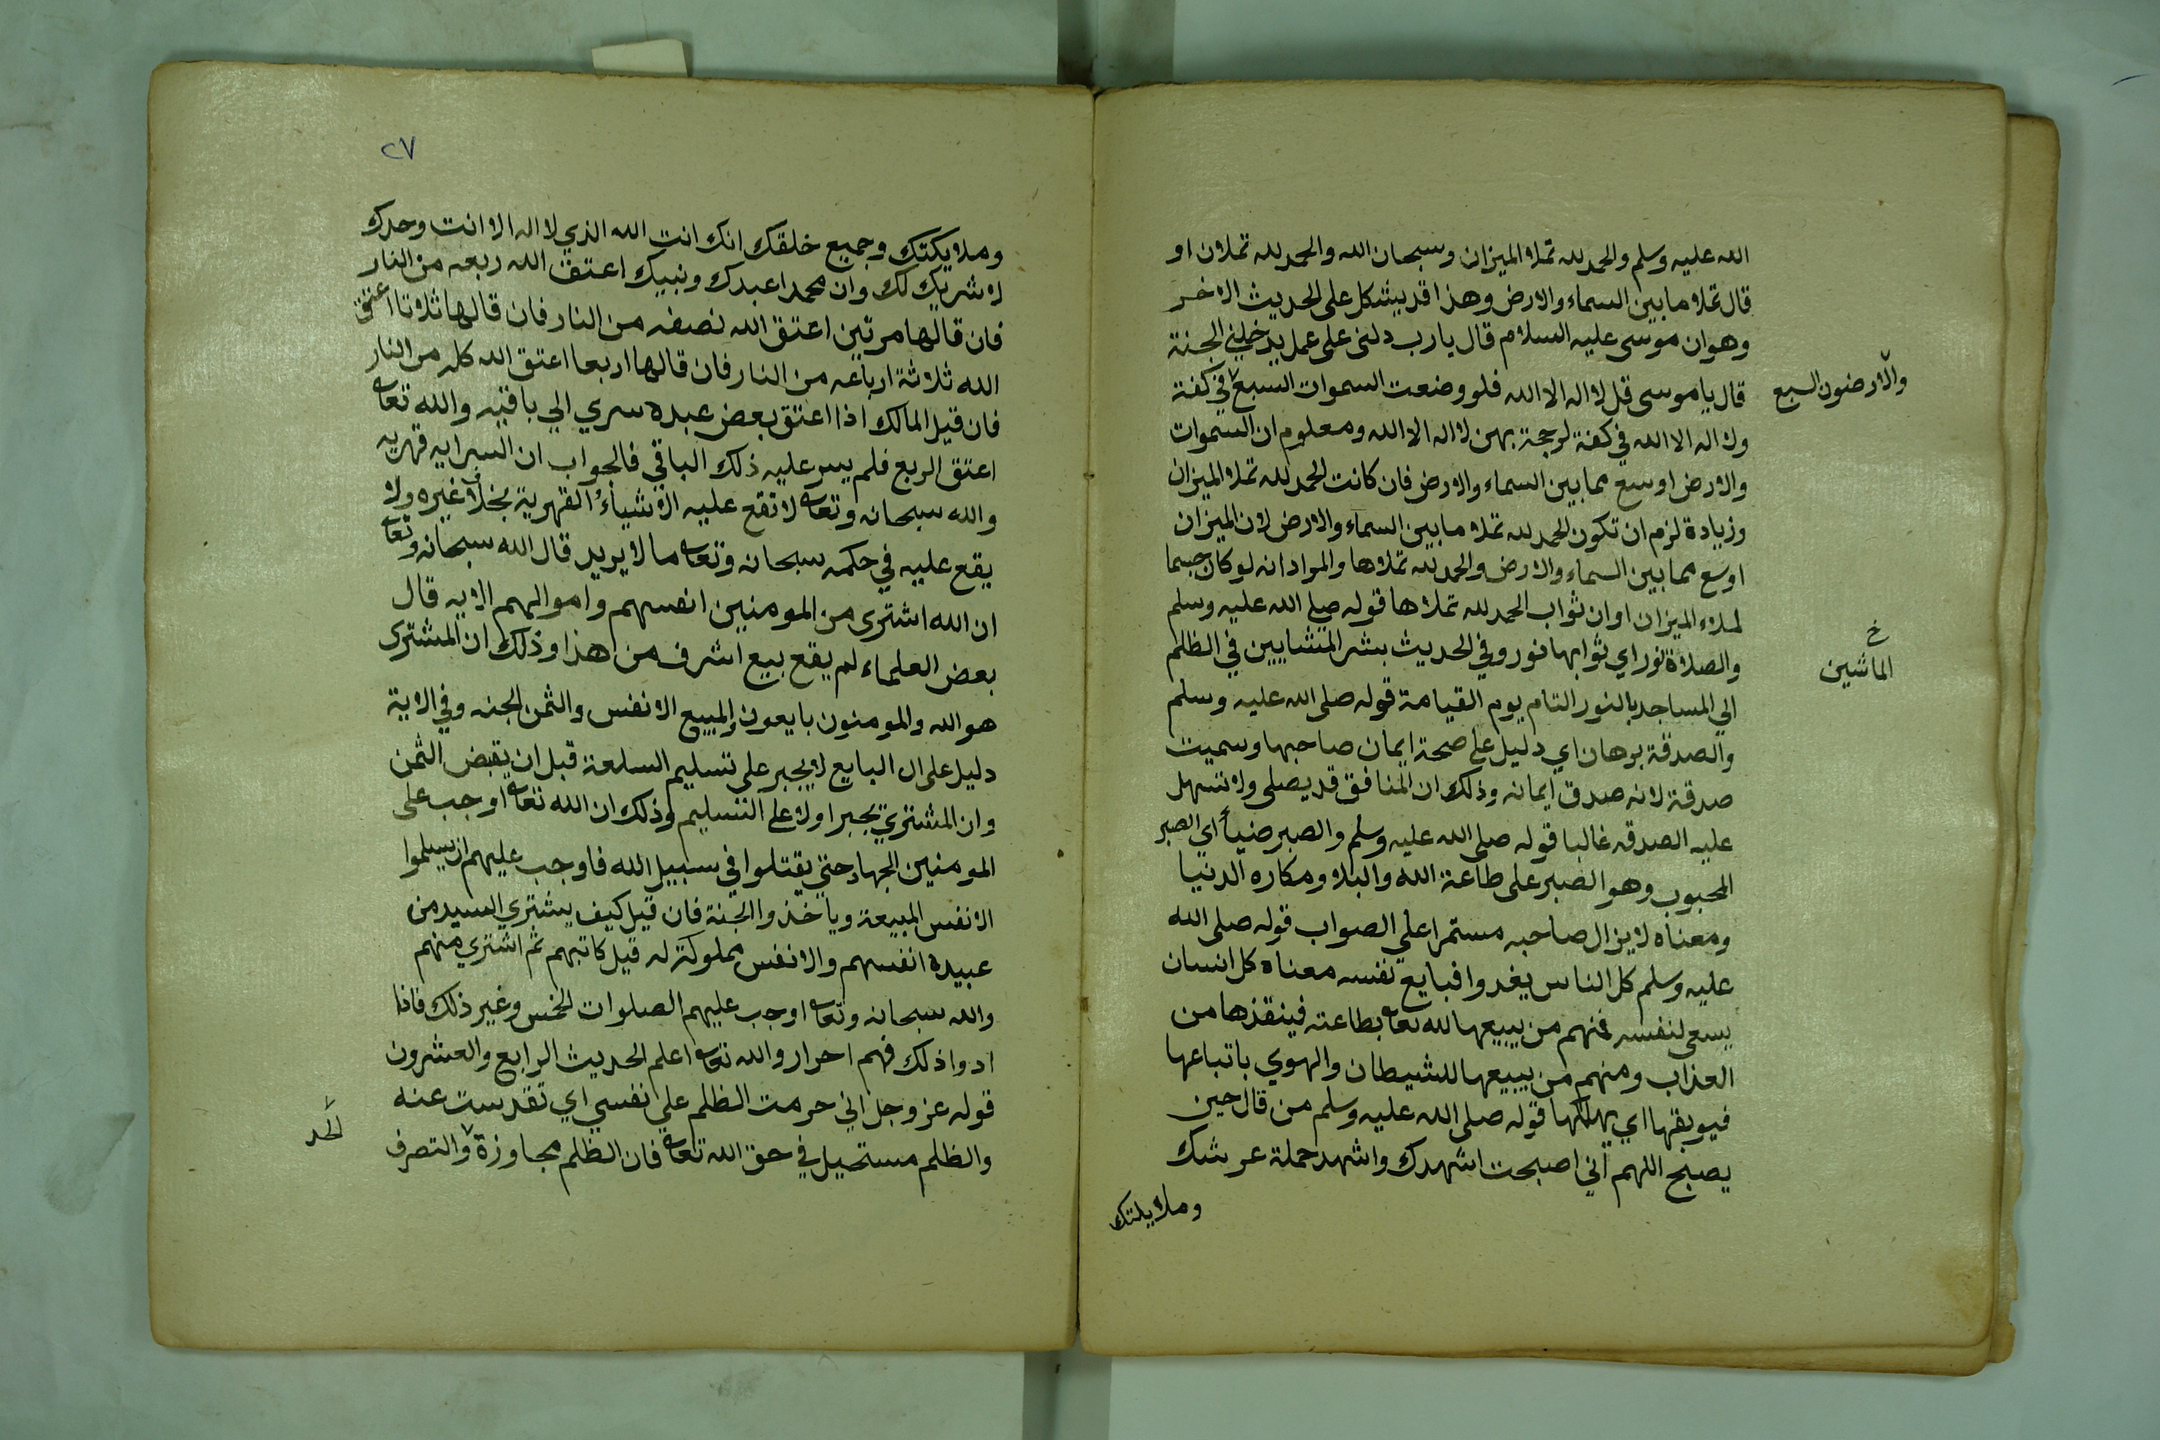 الله عليه وسلم والحمد لله تملا الميزان وسبحان الله والحمد لله تملان او
قال تملا ما بين السماء والارض وهذا قد يشكل على الحديث الاخر
وهو ان موسى عليه السلام قال يا رب دلني على عمل يدخلني الجنة
قال يا موسى قل لا اله الا الله فلو وضعت السموات السبع في كفة
والارضون السبع
ولا اله الا الله في كفة لرجحة بهن لا اله الا الله ومعلوم ان السموات
والارض اوسع مما بين السماء والارض فان كانت الحمد لله تملا الميزان
وزيادة لزم ان تكون الحمد لله تملا ما بين السماء والارض لان الميزان
اوسع مما بين السماء والارض والحمد لله تملاها والمراد انه لو كان جسما
لملاء الميزان او ان ثواب الحمد لله تملاها قوله صلى الله عليه وسلم
والصلاة نور اي ثوابها نور وفي الحديث بشر المشايين في الظلم
خ
الماشين
الي المساجد بالنور التام يوم القيامة قوله صلى الله عليه وسلم
والصدقة برهان اي دليل على صحة ايمان صاحبها وسميت
صدقة لانه صدق ايمانه وذلك ان المنافق قد يصلى ولا تسهل
عليه الصدقه غالبا قوله صلى الله عليه وسلم والصبر ضياء اي الصبر
المحبوب وهو الصبر على طاعة الله والبلا ومكاره الدنيا
ومعناه لا يزال صاحبه مستمرا على الصواب قوله صلى الله
عليه وسلم كل الناس يغدوا فبايع نفسه معناه كل انسان
يسعى لنفسه فمنهم من يبيعها لله تعا بطاعته فينقذها من
العذاب ومنهم من يبيعها للشيطان والهوي باتباعها
فيوبقها اي يهلكها قوله صلى الله عليه وسلم من قال حين
يصبح اللهم اني اصبحت اشهدك واشهد حملة عرشك
وملايكتك
٢٧
وملايكتك وجميع خلقك انك انت الله الذي لا اله الا انت وحدك
لا شريك لك وان محمدا عبدك ونبيك اعتق الله ربعه من النار
فان قالها مرتين اعتق الله نصفه من النار فان قالها ثلاثا اعتق
الله ثلاثة ارباعه من النار فان قالها اربعا اعتق الله كله من النار
فان قيل المالك اذا اعتق بعض عبده سري الي باقيه والله تعا
اعتق الربع فلم يسر عليه ذلك الباقي فالجواب ان السرايه قهريه
والله سبحانه وتعا لا تقع عليه الاشياء القهرية بخلاف غيره ولا
يقع عليه في حكمه سبحانه وتعا ما لا يريد قال الله سبحانه وتعا
ان الله اشترى من المومنين انفسهم واموالهم الايه قال
بعض العلماء لم يقع بيع اشرف من هذا وذلك ان المشترى
هو الله والمومنون بايعون والمبيع الانفس والثمن الجنه وفي الاية
دليل على ان البايع لا يجبر على تسليم السلعة قبل ان يقبض الثمن
وان المشتري يجبر اولا على التسليم وذلك ان الله تعا اوجب على
المومنين الجهاد حتي يقتلوا في سبيل الله فاوجب عليهم ان يسلموا
الانفس المبيعة وياخذوا الجنة فان قيل كيف يشتري السيد من
عبيده انفسهم والانفس مملوكة له قيل كاتبهم ثم اشتري منهم
والله سبحانه وتعا اوجب عليهم الصلوات الخمس وغير ذلك فاذا
ادوا ذلك فهم احرار والله تعا اعلم الحديث الرابع والعشرون
قوله عز وجل اني حرمت الظلم على نفسي اي تقدست عنه
والظلم مستحيل في حق الله تعا فان الظلم مجاوزة والتصرف
الحد